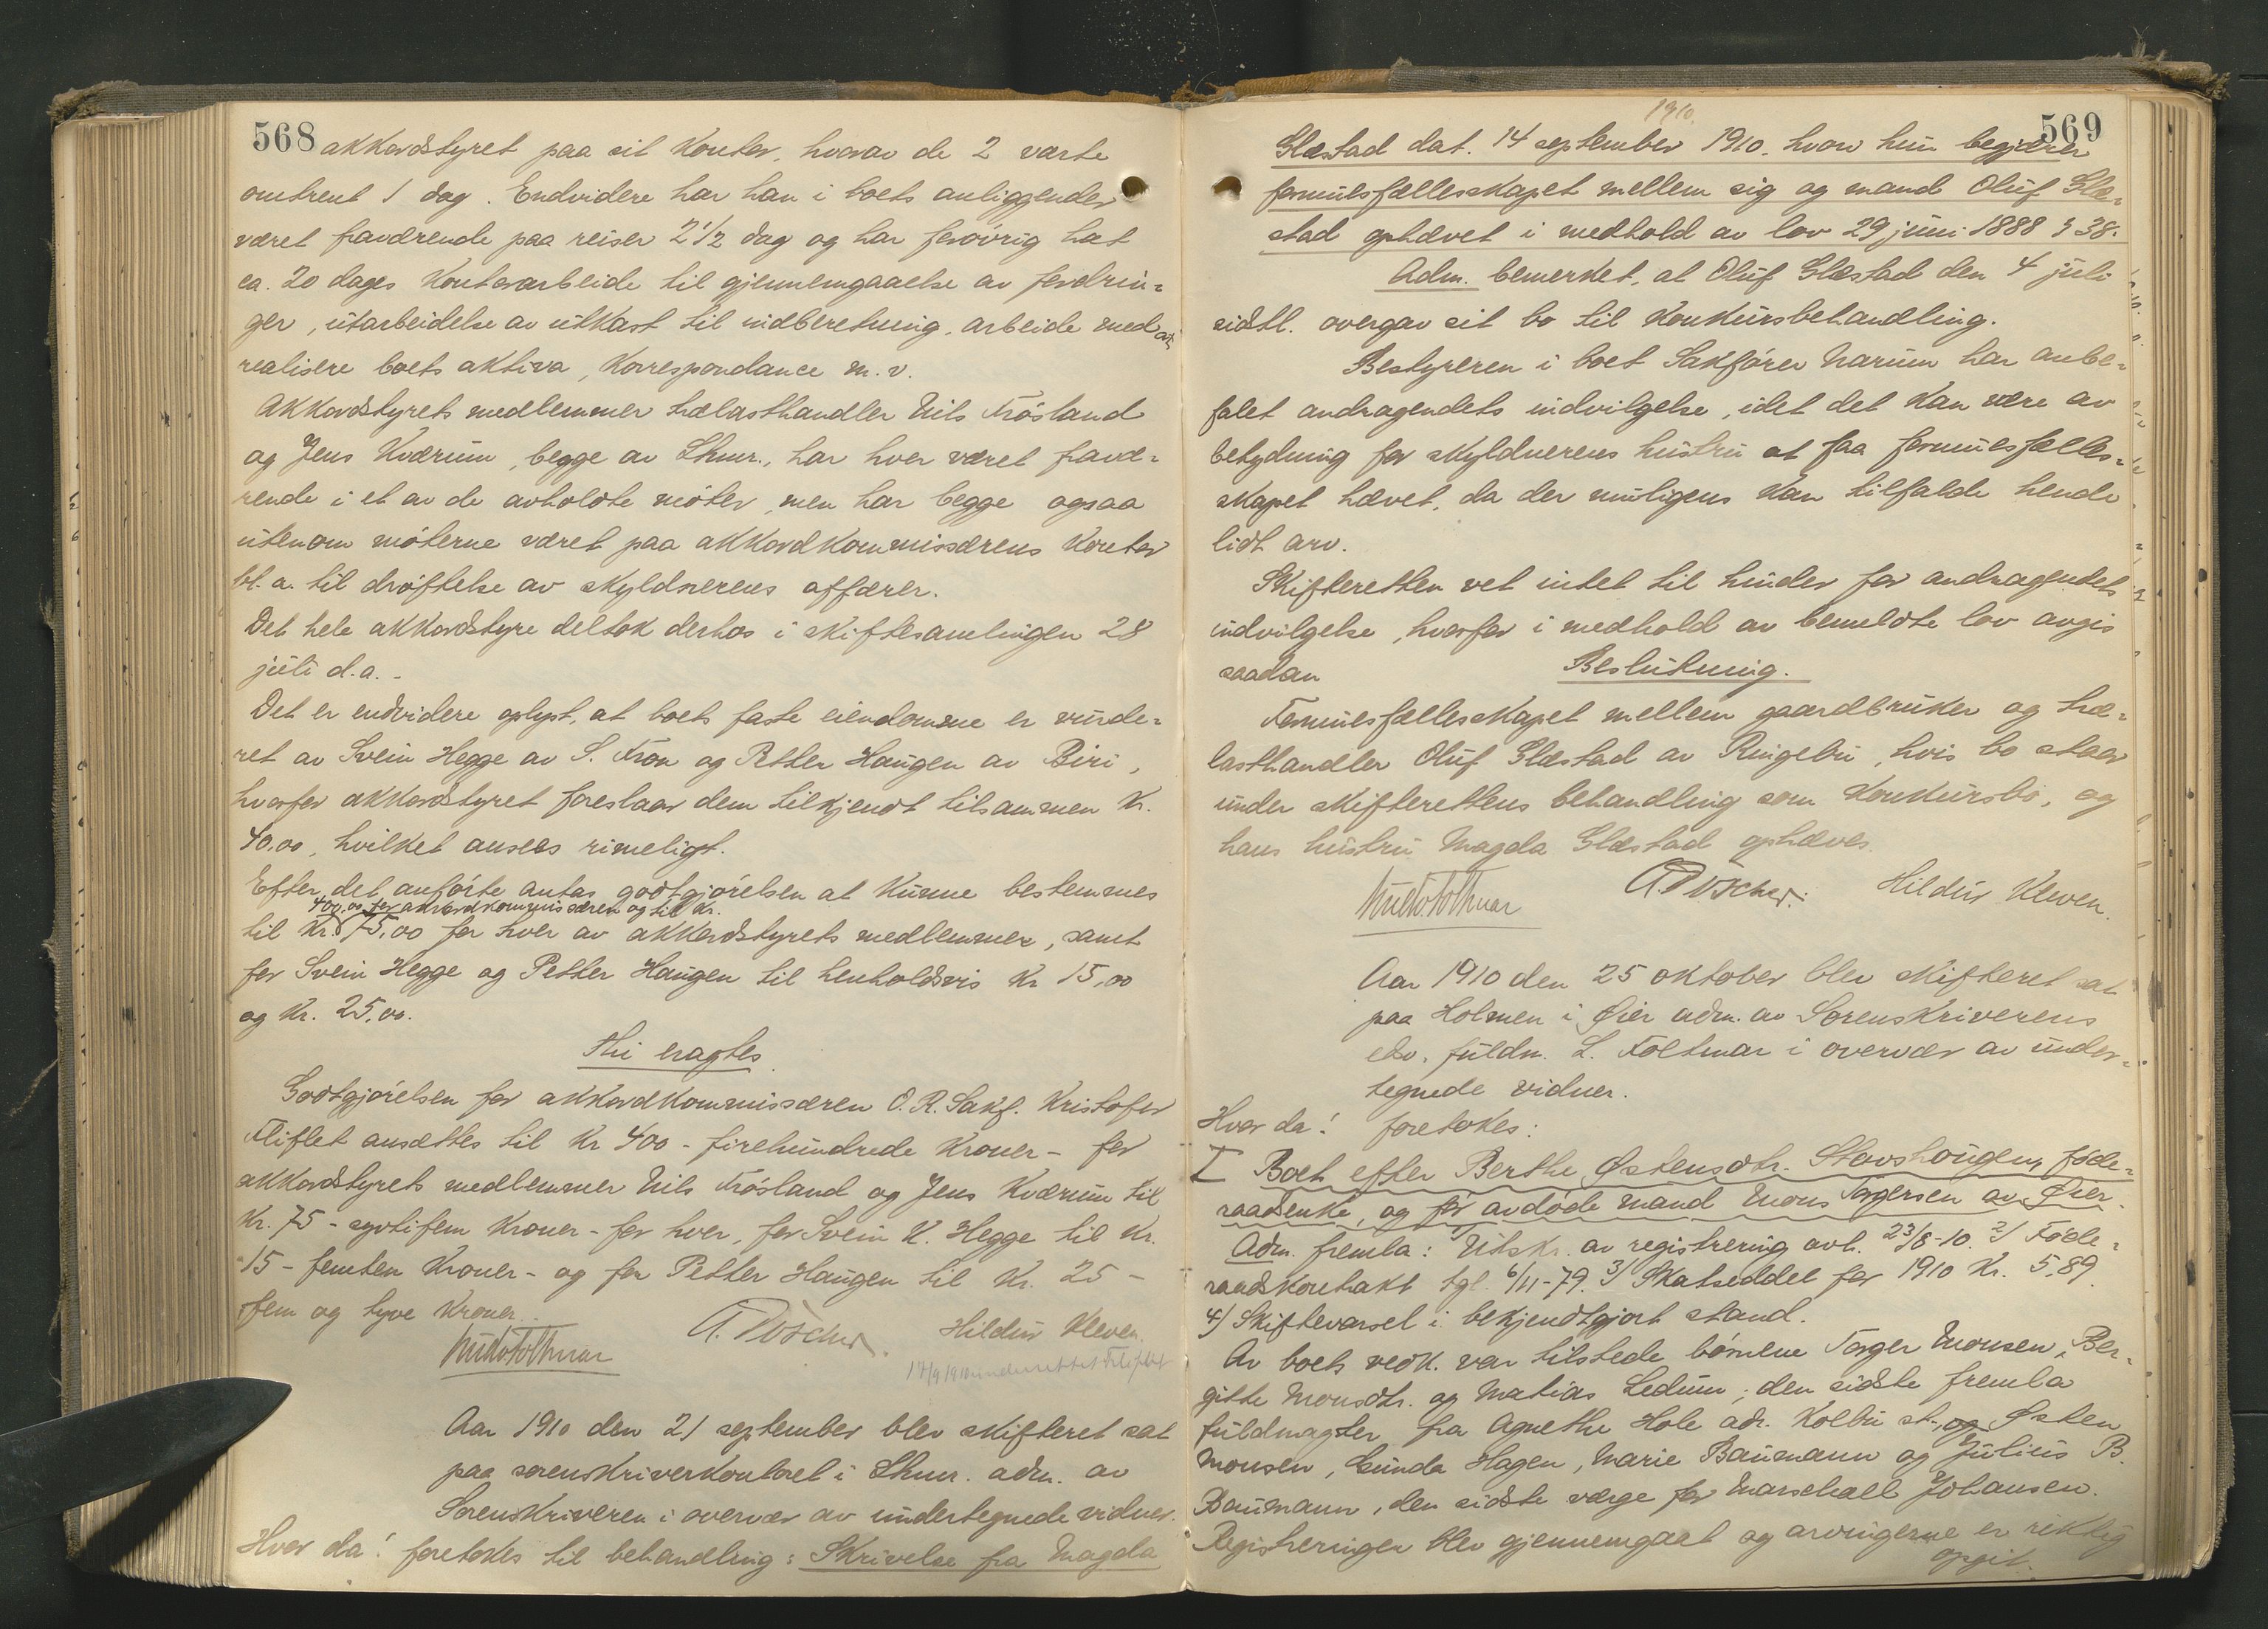 568
akkordstyret paa sit kontor, hvorav de 2 varte
omtrent 1 dag. Endvidere har han i boets anliggender
været fraværende paa reiser 2 1/2 dag og har forøvrig hat
ca. 20 dages kontorarbeide til gjennemgaaelse av fordrin=
ger, utarbeidelse av utkast til indberetning, arbeide med at
realisere boets aktiva, korrespondance m.v.
Akkordstyrets medlemmer trælasthandler Nils Frøsland
og Jens Kværum, begge av Lhmr., har hver været fravæ=
rende i et av de avholdte møter, men har begge ogsaa
utenom møterne været paa akkordkommissærens kontor
bl.a. til drøftelse av skyldnerens affærer.
Det hele akkordstyre deltok derhos i skiftesamlingen 28
juli d.a.-
Det er endvidere oplyst, at boets faste eiendomme er vurde=
ret av Svein Hegge av S. Fron og Petter Haugen av Biri,
hvorfor akkordstyret foreslaar dem tilkjendt tilsammen kr.
40.00, hvilket ansees rimeligt.
Efter det anførte antas godtgjørelsen at kunne bestemmes
400.00 for akkordkommissæren og til kr.
til kr. 75,00 for hver av akkordstyrets medlemmer, samt
for Svein Hegge og Petter Haugen til henholdsvis kr 15,00
og kr. 25,00.
Thi eragtes
Godtgjørelsen for akkordkommissæren O.R. Sakf. Kristofer
Fliflet ansættes til kr 400 - firehundrede kroner - for
akkordstyrets medlemmer Nils Frøsland og Jens Kværum til
kr. 75 - sytifem kroner - for hver, for Svein K. Hegge til kr.
15 - femten kroner - og for Petter Haugen til kr. 25 -
fem og tyve kroner.
Hildur Kleven.
Aar 1910 den 21 september blev skifteret sat
paa sorenskriverkontoret i Lhmr. adm. av
Sorenskriveren i overvær av undertegnede vidner.
Hvor da! foretokes til behandling: Skrivelse fra Magda
1910.
569
Glæstad dat. 14 september 1910. hvori hun begjærer
formuesfællesskapet mellem sig og mand Oluf Glæ=
stad ophævet i medhold av lov 29 juni 1888 § 38.
Adm. bemerket, at Oluf Glæstad den 4 juli
sidstl. overgav sit bo til konkursbehandling.
Bestyreren i boet Sakfører Narum har anbe=
falet andragendets indvilgelse, idet det kan være av
betydning for skyldnerens hustru at faa formuesfælles=
skapet hævet, da der muligens kan tilfalde hende
lidt arv.
Skifteretten vet intet til hinder for andragendets
indvilgelse, hvorfor i medhold av bemeldte lov avgis
saadan
Beslutning.
Formuesfællesskapet mellem gaardbruker og træ=
lasthandler Oluf Glæstad av Ringebu, hvis bo staar
under skifterettens behandling som konkursbo, og
hans hustru Magda Glæstad ophæves.
Hildur Kleven.
Aar 1910 den 25 oktober blev skifteret sat
paa Holmen i Øier adm. av Sorenskriverens
edsv. fuldm. L. Foltmar i overvær av under=
tegnede vidner.
Hvor da! foretokes:
I Boet efter Berthe Østensdtr. Stovshaugen, føde=
raadsenke, og før avdøde mand Mons Torgersen av Øier.
Adm. fremla: 1/ Utskr. av registrering avh. 23/8-10. 2/ Føde=
raadskontrakt tgl. 6/11-79. 3/ Skatseddel for 1910 kr. 5,89.
4) Skiftevarsel i bekjendtgjort stand.
Av boets vedk. var tilstede børnene Torger Monsen, Ber=
gitte Monsdtr. og Matias Ledum; den sidste fremla
fuldmagter fra Agnethe Hole adr. Kolbu st., og Østen
Monsen, Gunda Hagen, Marie Baumann og Julius B.
Baumann, den sidste værge for Marschall Johansen.
Registreringen blev gjennemgaat og arvingerne er riktig
opgit.